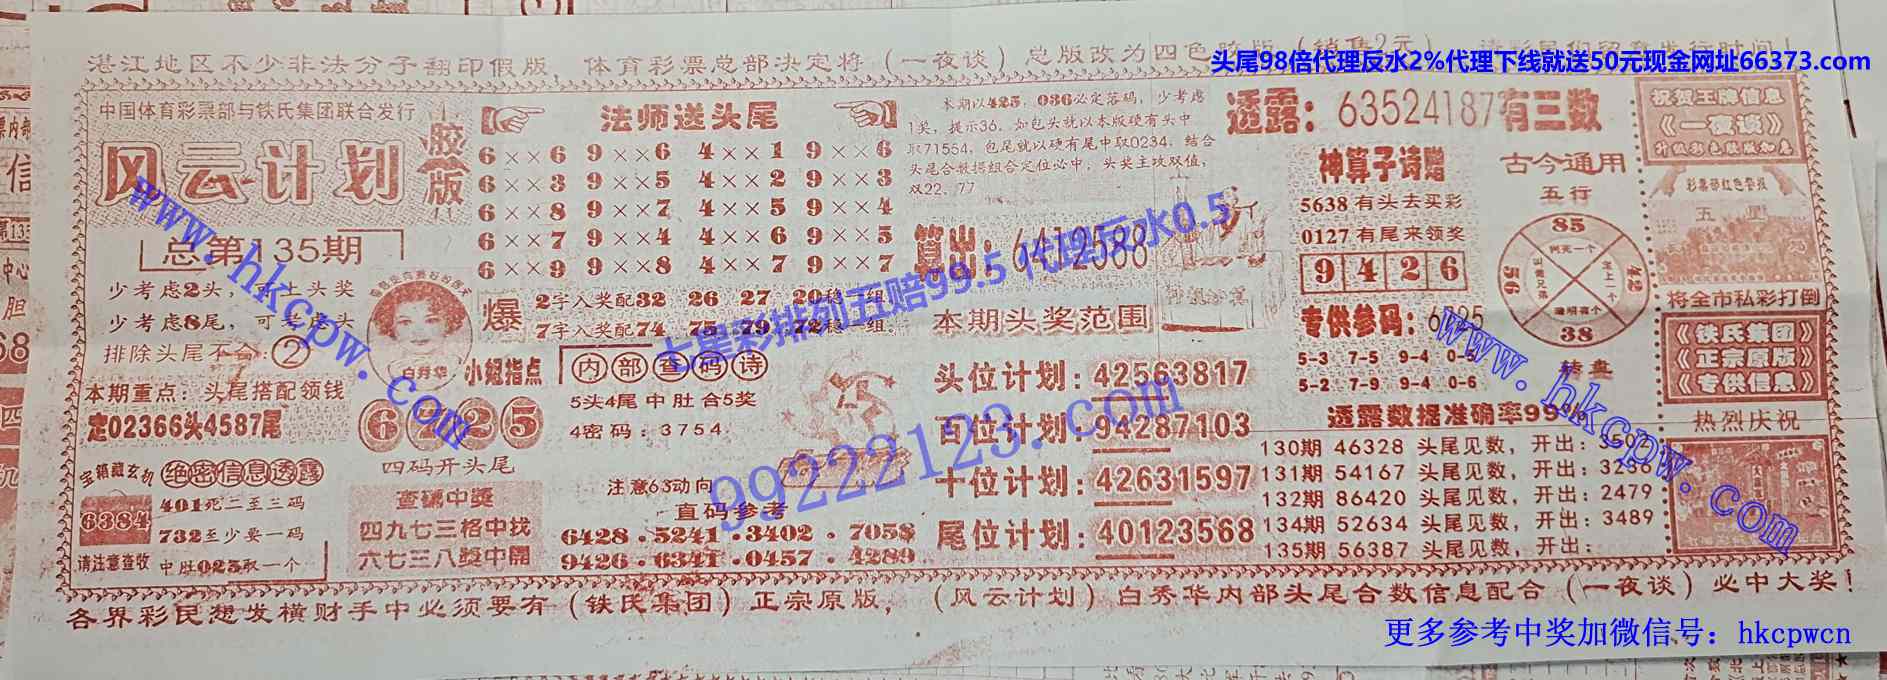 湛江地区不少非法分子翻印假版，体育彩票总部决定将（一夜谈）总版改为四色胶版（销售2元）
头尾98倍代理反水2%代理下线就送50元现金网址66373.com
中国体育彩票部与铁氏集团联合发行
风云计划
胶版
总第135期
少考虑2头，可上头奖
少考虑8尾，可
排除头尾不合：②
本期重点：头尾搭配领钱
定02366头4587尾
宝箱藏玄机
6384
请注意查收
绝密信息透露
401死二至三码
732至少要一码
中肚025取一个
白秀华
小姐指点
6725
四码开头尾
查码中奖
四九七三格中找
六七三八奬中開
法师送头尾
6××6 9××6 4××1 9××6
6××3 9××5 4××2 9××3
6××8 9××7 4××5 9××4
6××7 9××4 4××6 9××5
6××9 9××8 4××7 9××7
爆
2字入奖配32 26 27 20稳一组
7字入奖配74 75 79 72稳一组。
内部查码诗
5头4尾中肚合5奖
4密码：3754
注意63动向
直码参考
6428.5241.3402.7058
9426.6341.0457.4289
本期以425，036必定落码，少考虑
1奖，提示36，如包头就以本版硬有头中
取71554，包尾就以硬有尾中取0234，结合
头尾合数搭组合定位必中，头奖主攻双值，
双22、77
算出：6412588
本期头奖范围
头位计划：42563817
百位计划：94287103
十位计划：42631597
尾位计划：40123568
透露：63524187有三数
神算子诗赠
5638有头去买彩
0127有尾来领奖
9426
专供参码：
5-3 7-5 9-4 0-5
5-2 7-9 9-4 0-6
古今通用
五行
85
56
42
38
转盘
透露数据准确率99%
130期 46328 头尾见数，开出：3502
131期 54167 头尾见数，开出：3236
132期 86420 头尾见数，开出：2479
134期 52634 头尾见数，开出：3489
135期 56387 头尾见数，开出：
祝贺王牌信息
《一夜谈》
升级彩色胶版如意
彩票部红色警报
将全市私彩打倒
《铁氏集团》
《正宗原版》
《专供信息》
热烈庆祝
各界彩民想发横财手中必须要有（铁氏集团）正宗原版，（风云计划）白秀华内部头尾合数信息配合（一夜谈）必中大奖！
www.hkcpw.com
七星彩排列五赔99.5 代理反水0.5
99222123.com
www.hkcpw.com
更多参考中奖加微信号：hkcpwcn